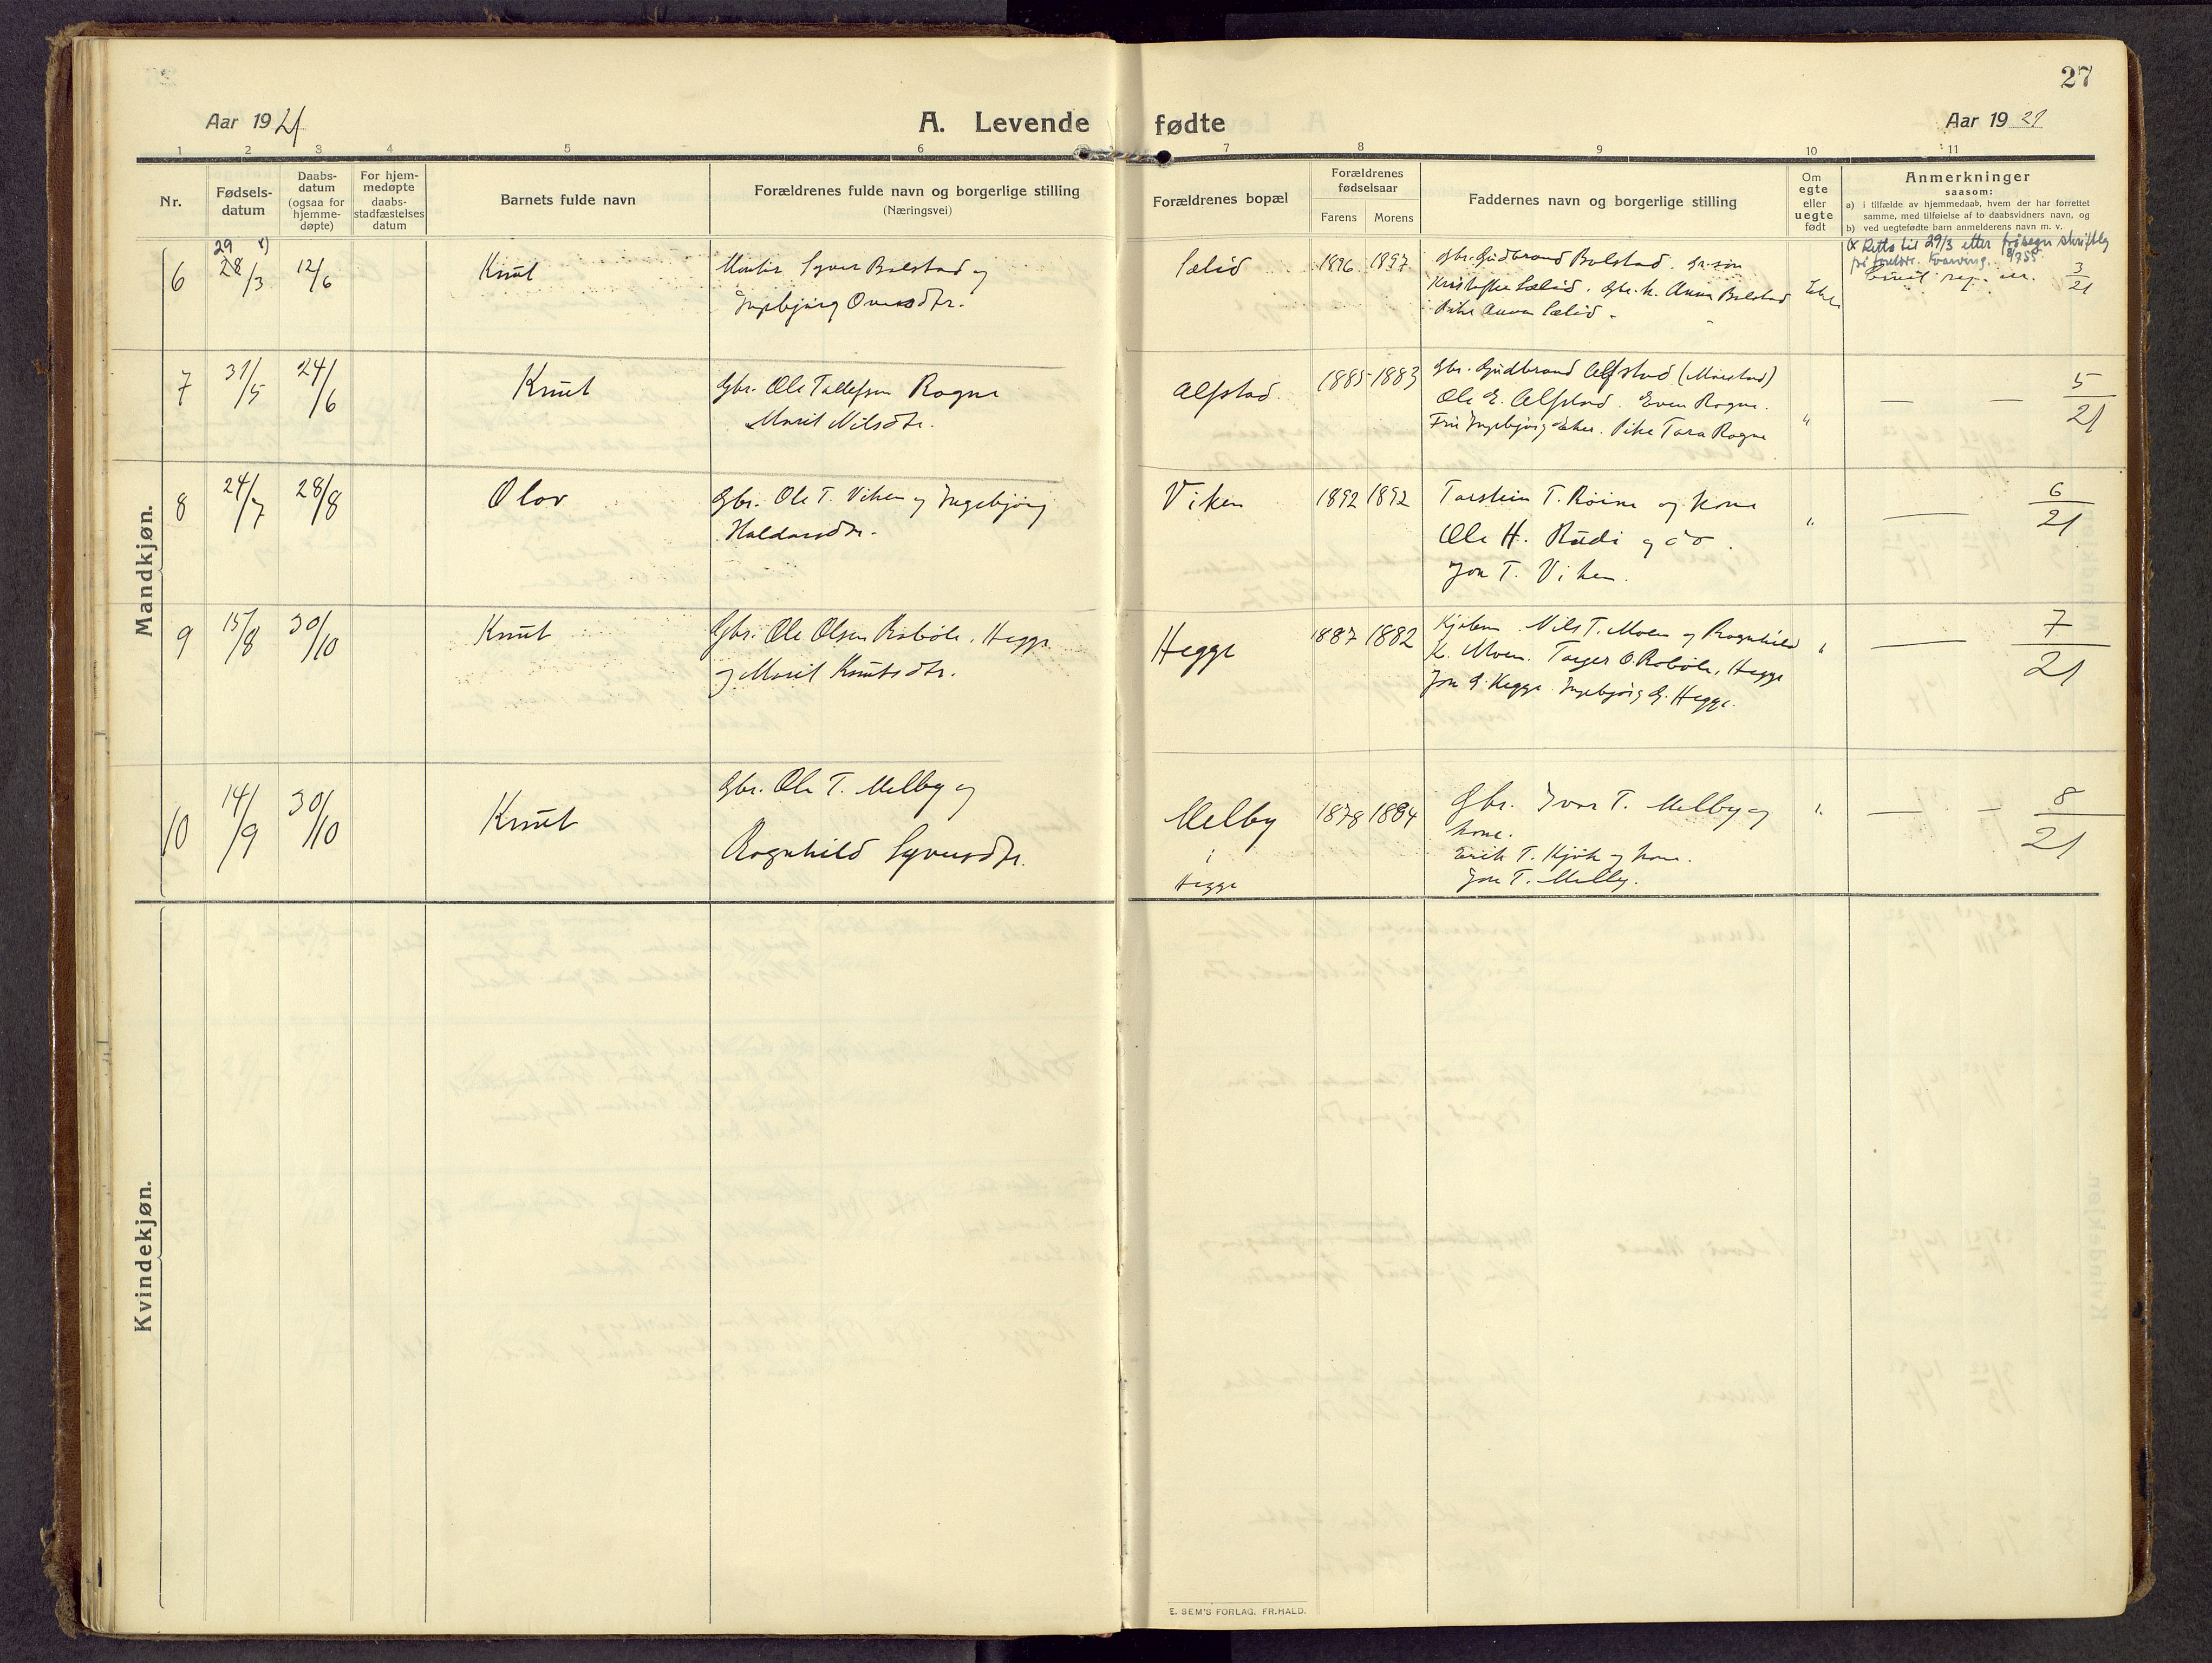 27
Aar 1921
A. Levende fødte
Aar 1921
1 2 3 4 5 6 7 8 9 10 11
Nr.
Fødsels-
datum
Daabs-
datum
(ogsaa for
hjemme-
døpte)
For hjem-
medøpte
daabs-
stadfæstelses
datum
Barnets fulde navn
Forældrenes fulde navn og borgerlige stilling
(Næringsvei)
Forældrenes bopæl
Forældrenes
fødselsaar
Farens Morens
Faddernes navn og borgerlige stilling
Om
egte
eller
uegte
født
Anmerkninger
saasom:
a) i tilfælde av hjemmedaab, hvem der har forrettet
samme, med tilføielse af to daabsvidners navn, og
b) ved uegtefødte barn anmelderens navn m. v.
Mandkjøn.
6
29 x)
28/3
12/6
Knut
Syver Bolstad og
Ingebjørg
Sælid
1896 1897
Gbr. Gudbrand Bolstad.
Kristoffer Sælid. Gbr. k. Anna Bolstad
Pike Anna Sælid.
x Retta til 29/3 etter
3/21
7
31/5
24/6
Knut
Gbr. Ole Tollefsen Rogne
Marit Nilsdtr.
Alfstad.
1885 1883
Gbr. Gudbrand Alfstad
Ole E. Alfstad. Even Rogne.
Ingebjørg Eker. Pike Tora Rogne
"
— — 5/21
8
24/7
28/8
Olav
Gbr. Ole T. Viken og Ingebjørg
Haldorsdtr.
Viken
1892 1892
Torstein T. Röine og kone
Ole H. Rudi og do.
Jon T. Viken.
"
— 6/21
9
15/8
30/10
Knut
Gbr. Ole Olsen Robøle, Hegge
og Marit Knutsdtr.
Hegge
1887 1882
Nils T. Moen og Ragnhild
K. Moen. Torger O. Robøle, Hegge
Jon G. Hegge. Ingebjørg G. Hegge.
"
— 7/21
10
14/9
30/10
Knut
Gbr. Ole T. Melby og
Ragnhild Syversdtr.
Melby
i
Hegge
1878 1884
Gbr. Ivar T. Melby og
kone.
Erik T. Kjøk og kone.
Jon T. Melby.
"
— — 8/21
Kvindekjøn.
E. SEM'S FORLAG, FR.HALD.